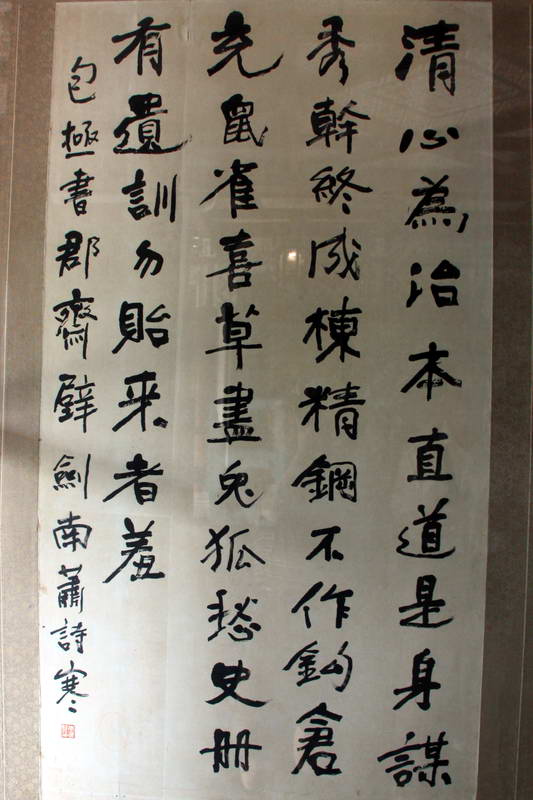 清心為治本直道是身謀
秀幹終成棟精鋼不作鈎倉
充鼠雀喜草盡兔狐愁史册
有遺訓勿貽来者羞
包拯書郡齋壁劍南蕭詩寒